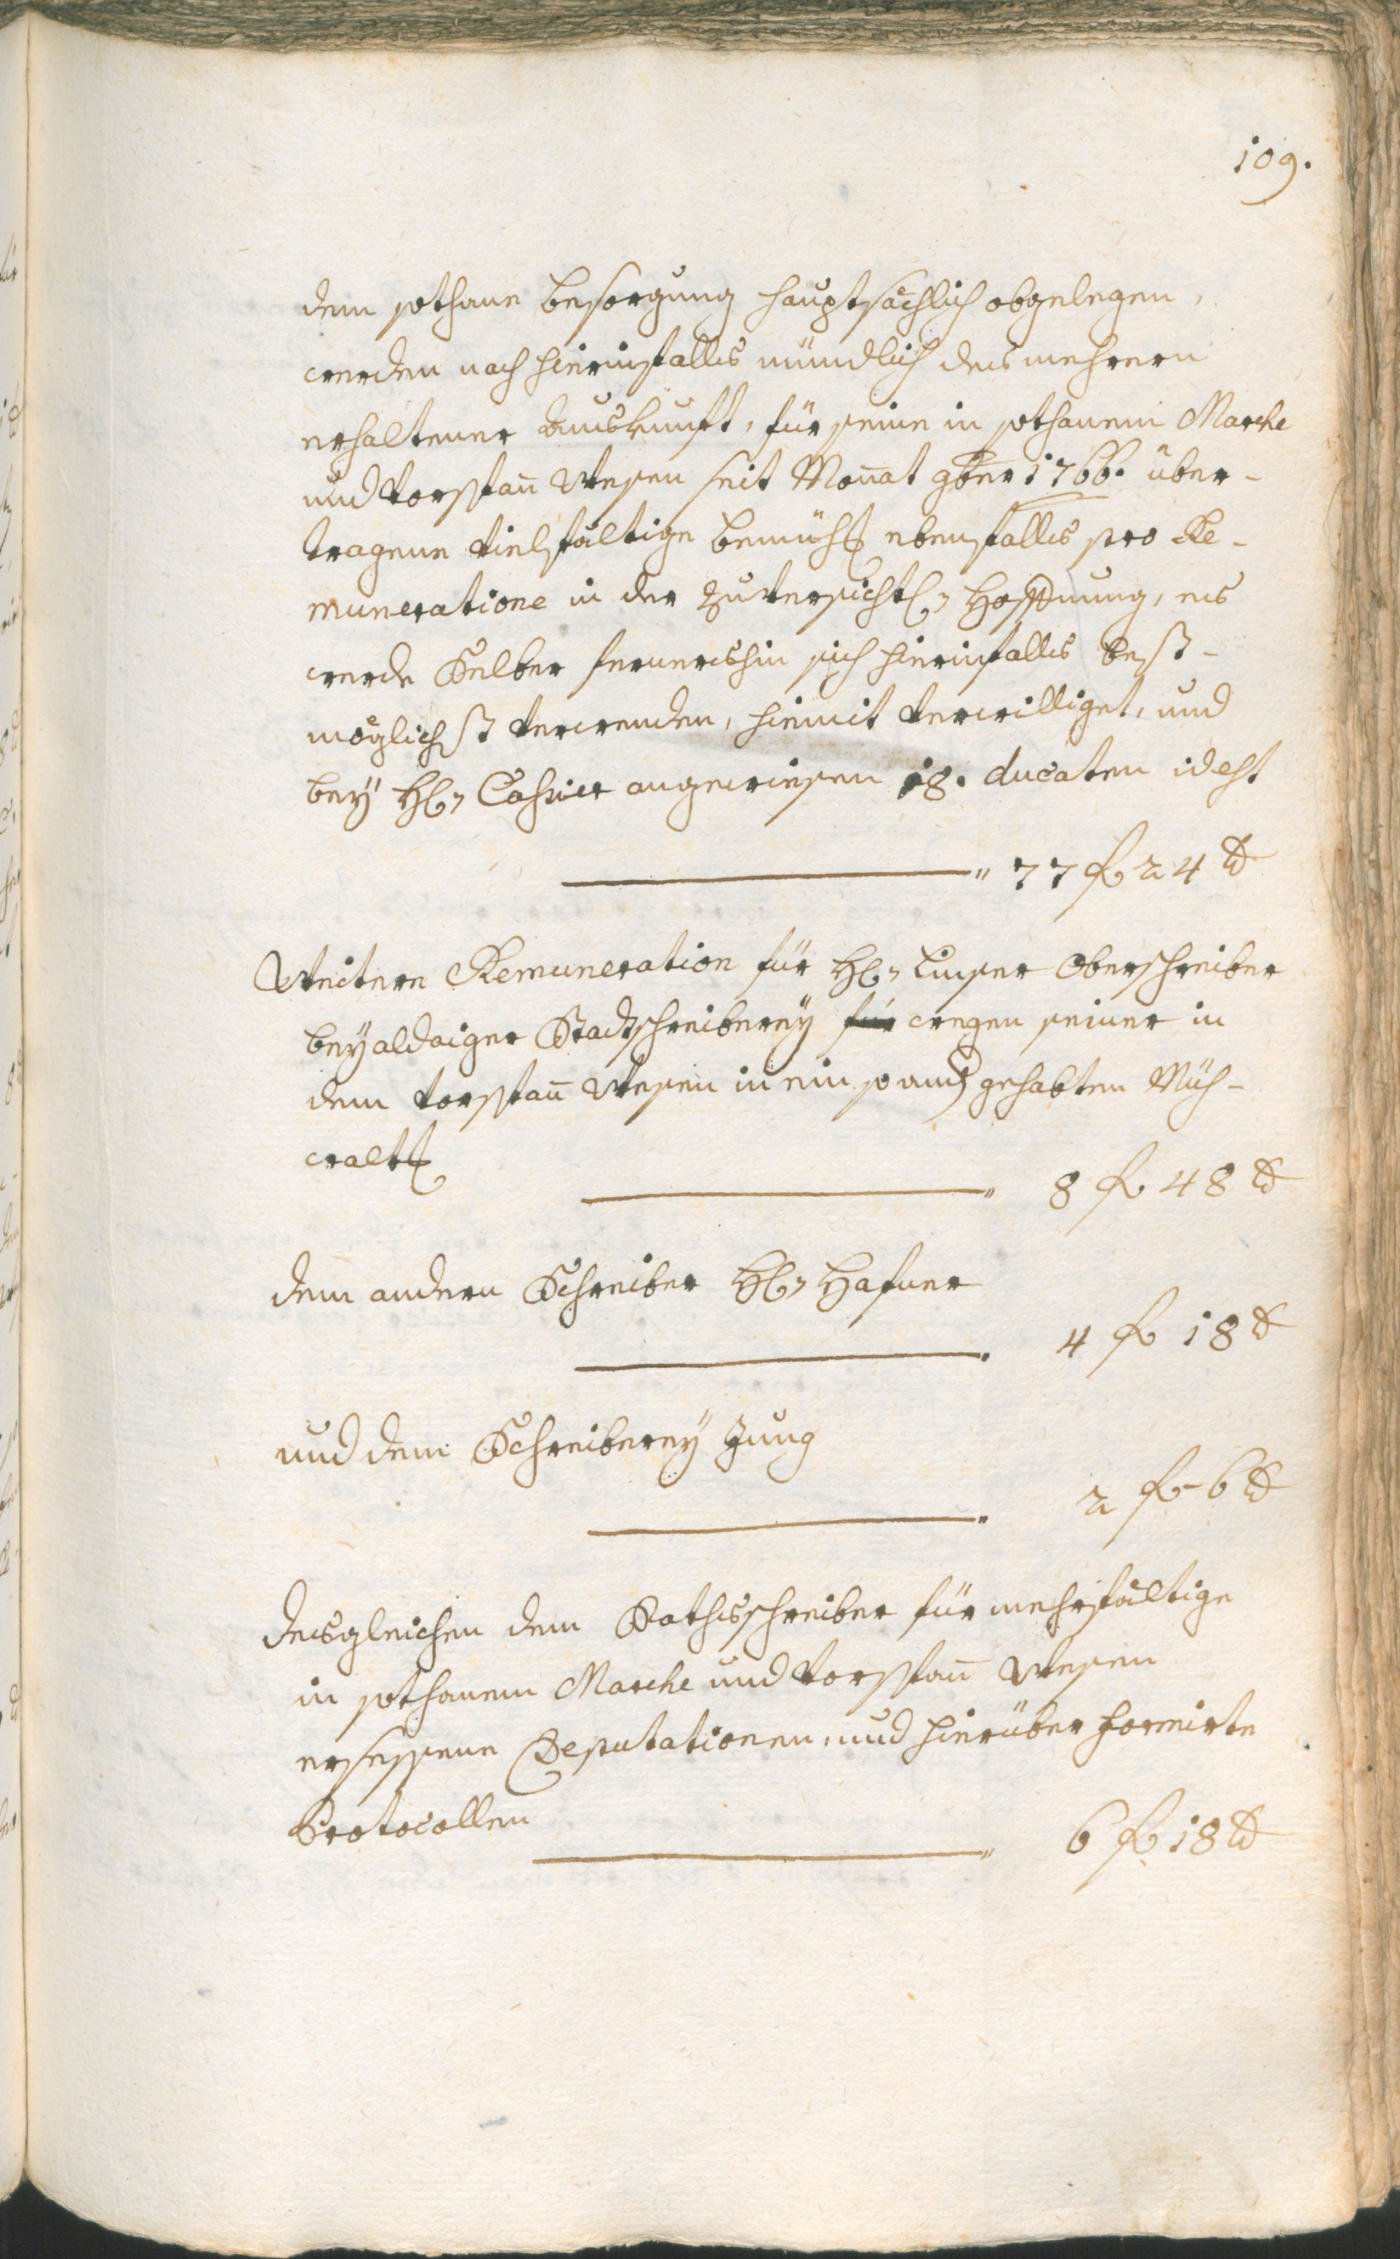 109.
dem sothane besorgung hauptsächlich obgelegen,
werden nach hierinfalls mündlich des mehrern
erhaltener Auskunft, für seine in sothanem Marche
und Vorstañ Wesen seit Moñat 9ber 1766. über-
tragene vielfältige bemüh ebenfalls pro Re-
muneratione in der zuversichtl: Hoffnung, es
werde Selber fernershin sich hierinfalls best-
möglichst verwenden, hiemit verwilliget, und
bey H: Cassier angewiesen 18. ducaten id est
77 f 24 x
Weitere Remuneration für H: Oberschreiber
bey aldaiger Stadtschreiberey für wegen seiner in
dem Vorstañ Wesen in ein so anderm gehabten Müh-
walt
8 f 48 x
dem andern Schreiber H: Hafner
4 f 18 x
und dem Schreiberey Jung
2 f - 6 x
desgleichen dem Rathsschreiber für mehrfältige
in sothanem Marche und Vorstañ Wesen
ersessene Deputationen, und hierüber formirte
Protocollen
6 f 18 x